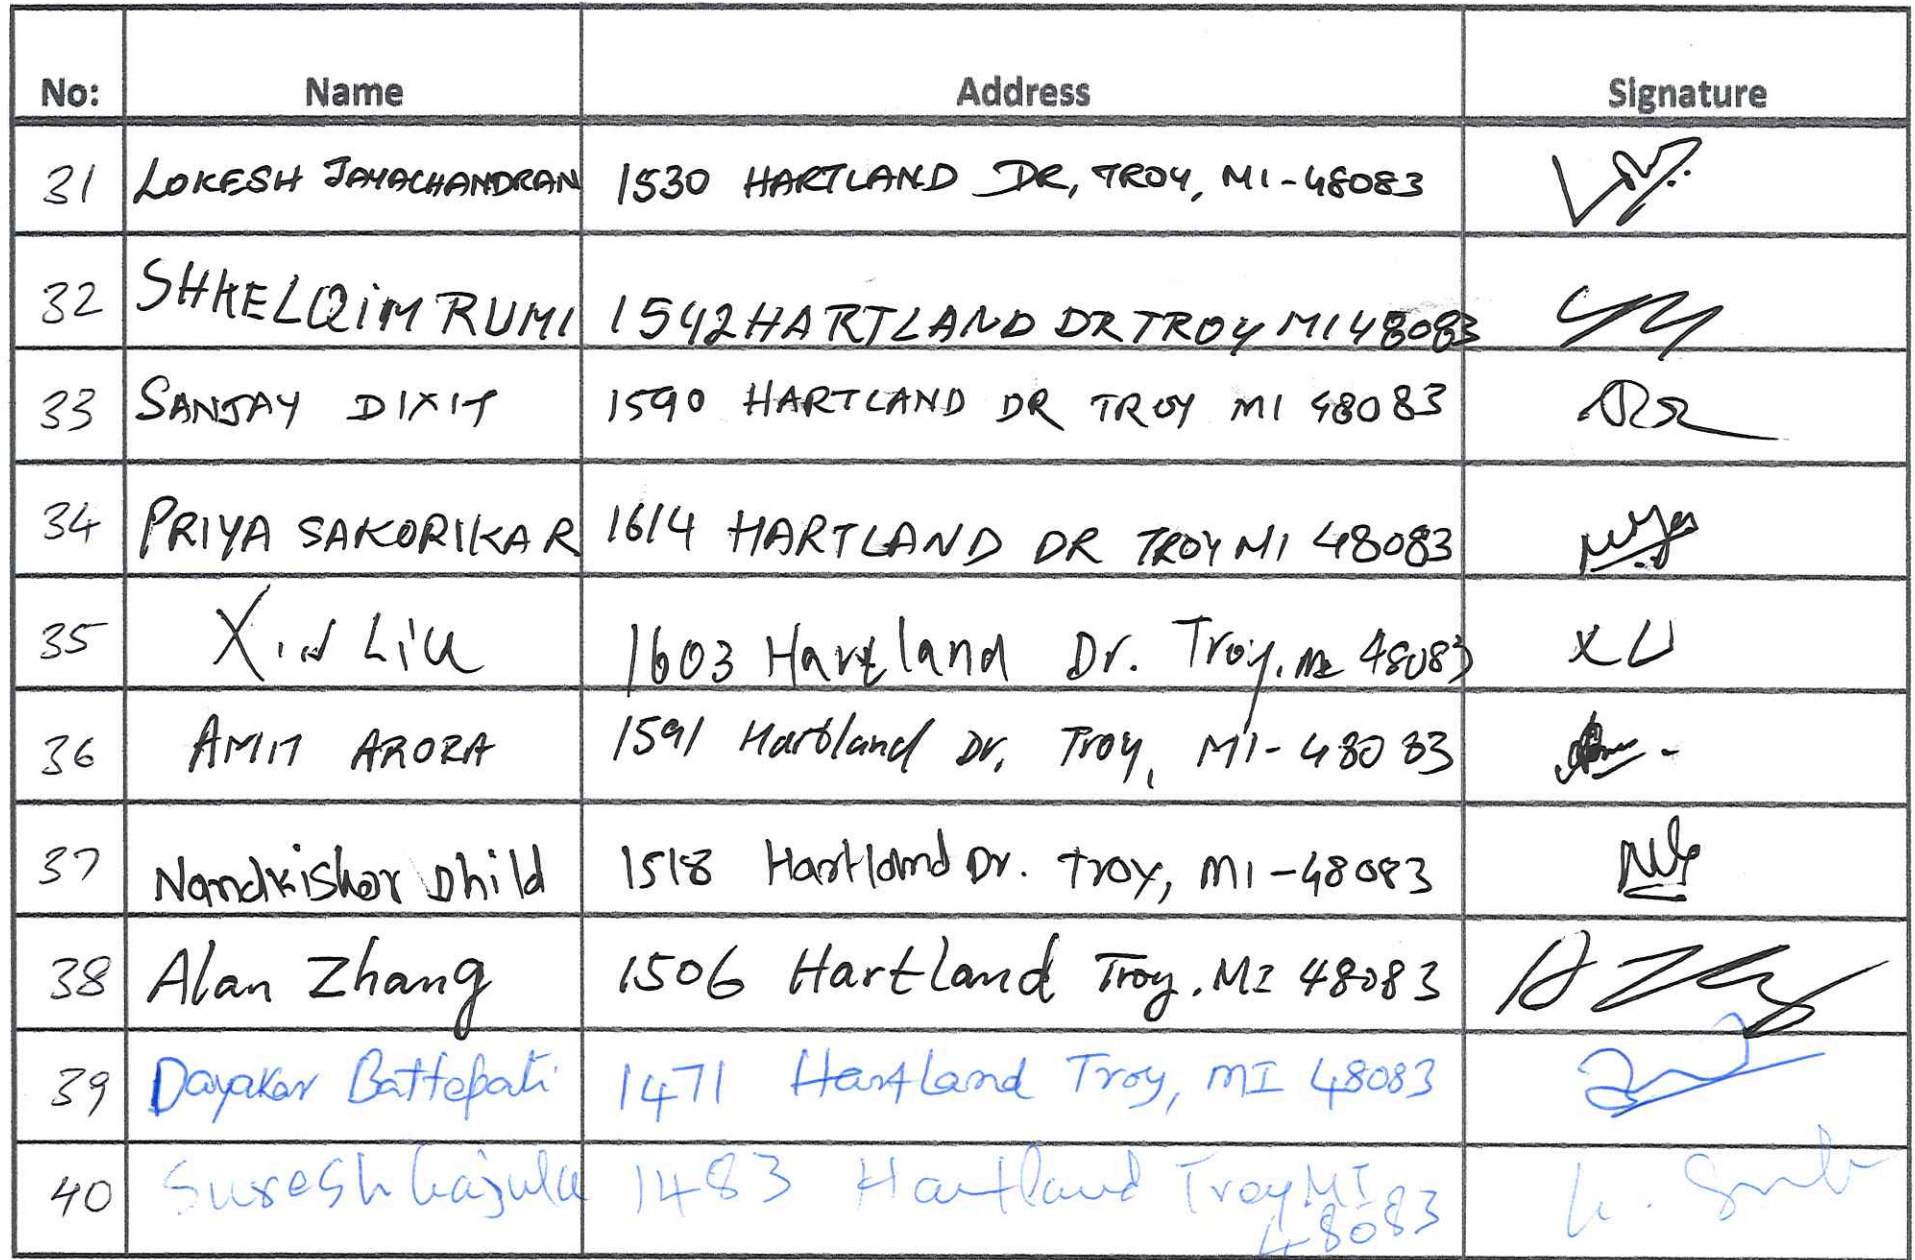 No: Name Address Signature
31 LOKESH JAYACHANDRAN 1530 HARTLAND DR, TROY, MI-48083
32 SHKELQIM RUMI 1542 HARTLAND DR TROY MI 48083
33 SANJAY DIXIT 1590 HARTLAND DR TROY MI 48083
34 PRIYA SAKORIKAR 1614 HARTLAND DR TROY MI 48083
35 Xin Liu 1603 Hartland Dr. Troy, MI 48083 XU
36 AMIT ARORA 1591 Hartland Dr, Troy, MI-48083
37 Nandkishor Dhild 1518 Hartland Dr. Troy, MI-48083
38 Alan Zhang 1506 Hartland Troy, MI 48083
39 Dayakar Battepati 1471 Hartland Troy, MI 48083
40 Suresh 1483 Hartland Troy MI
48083